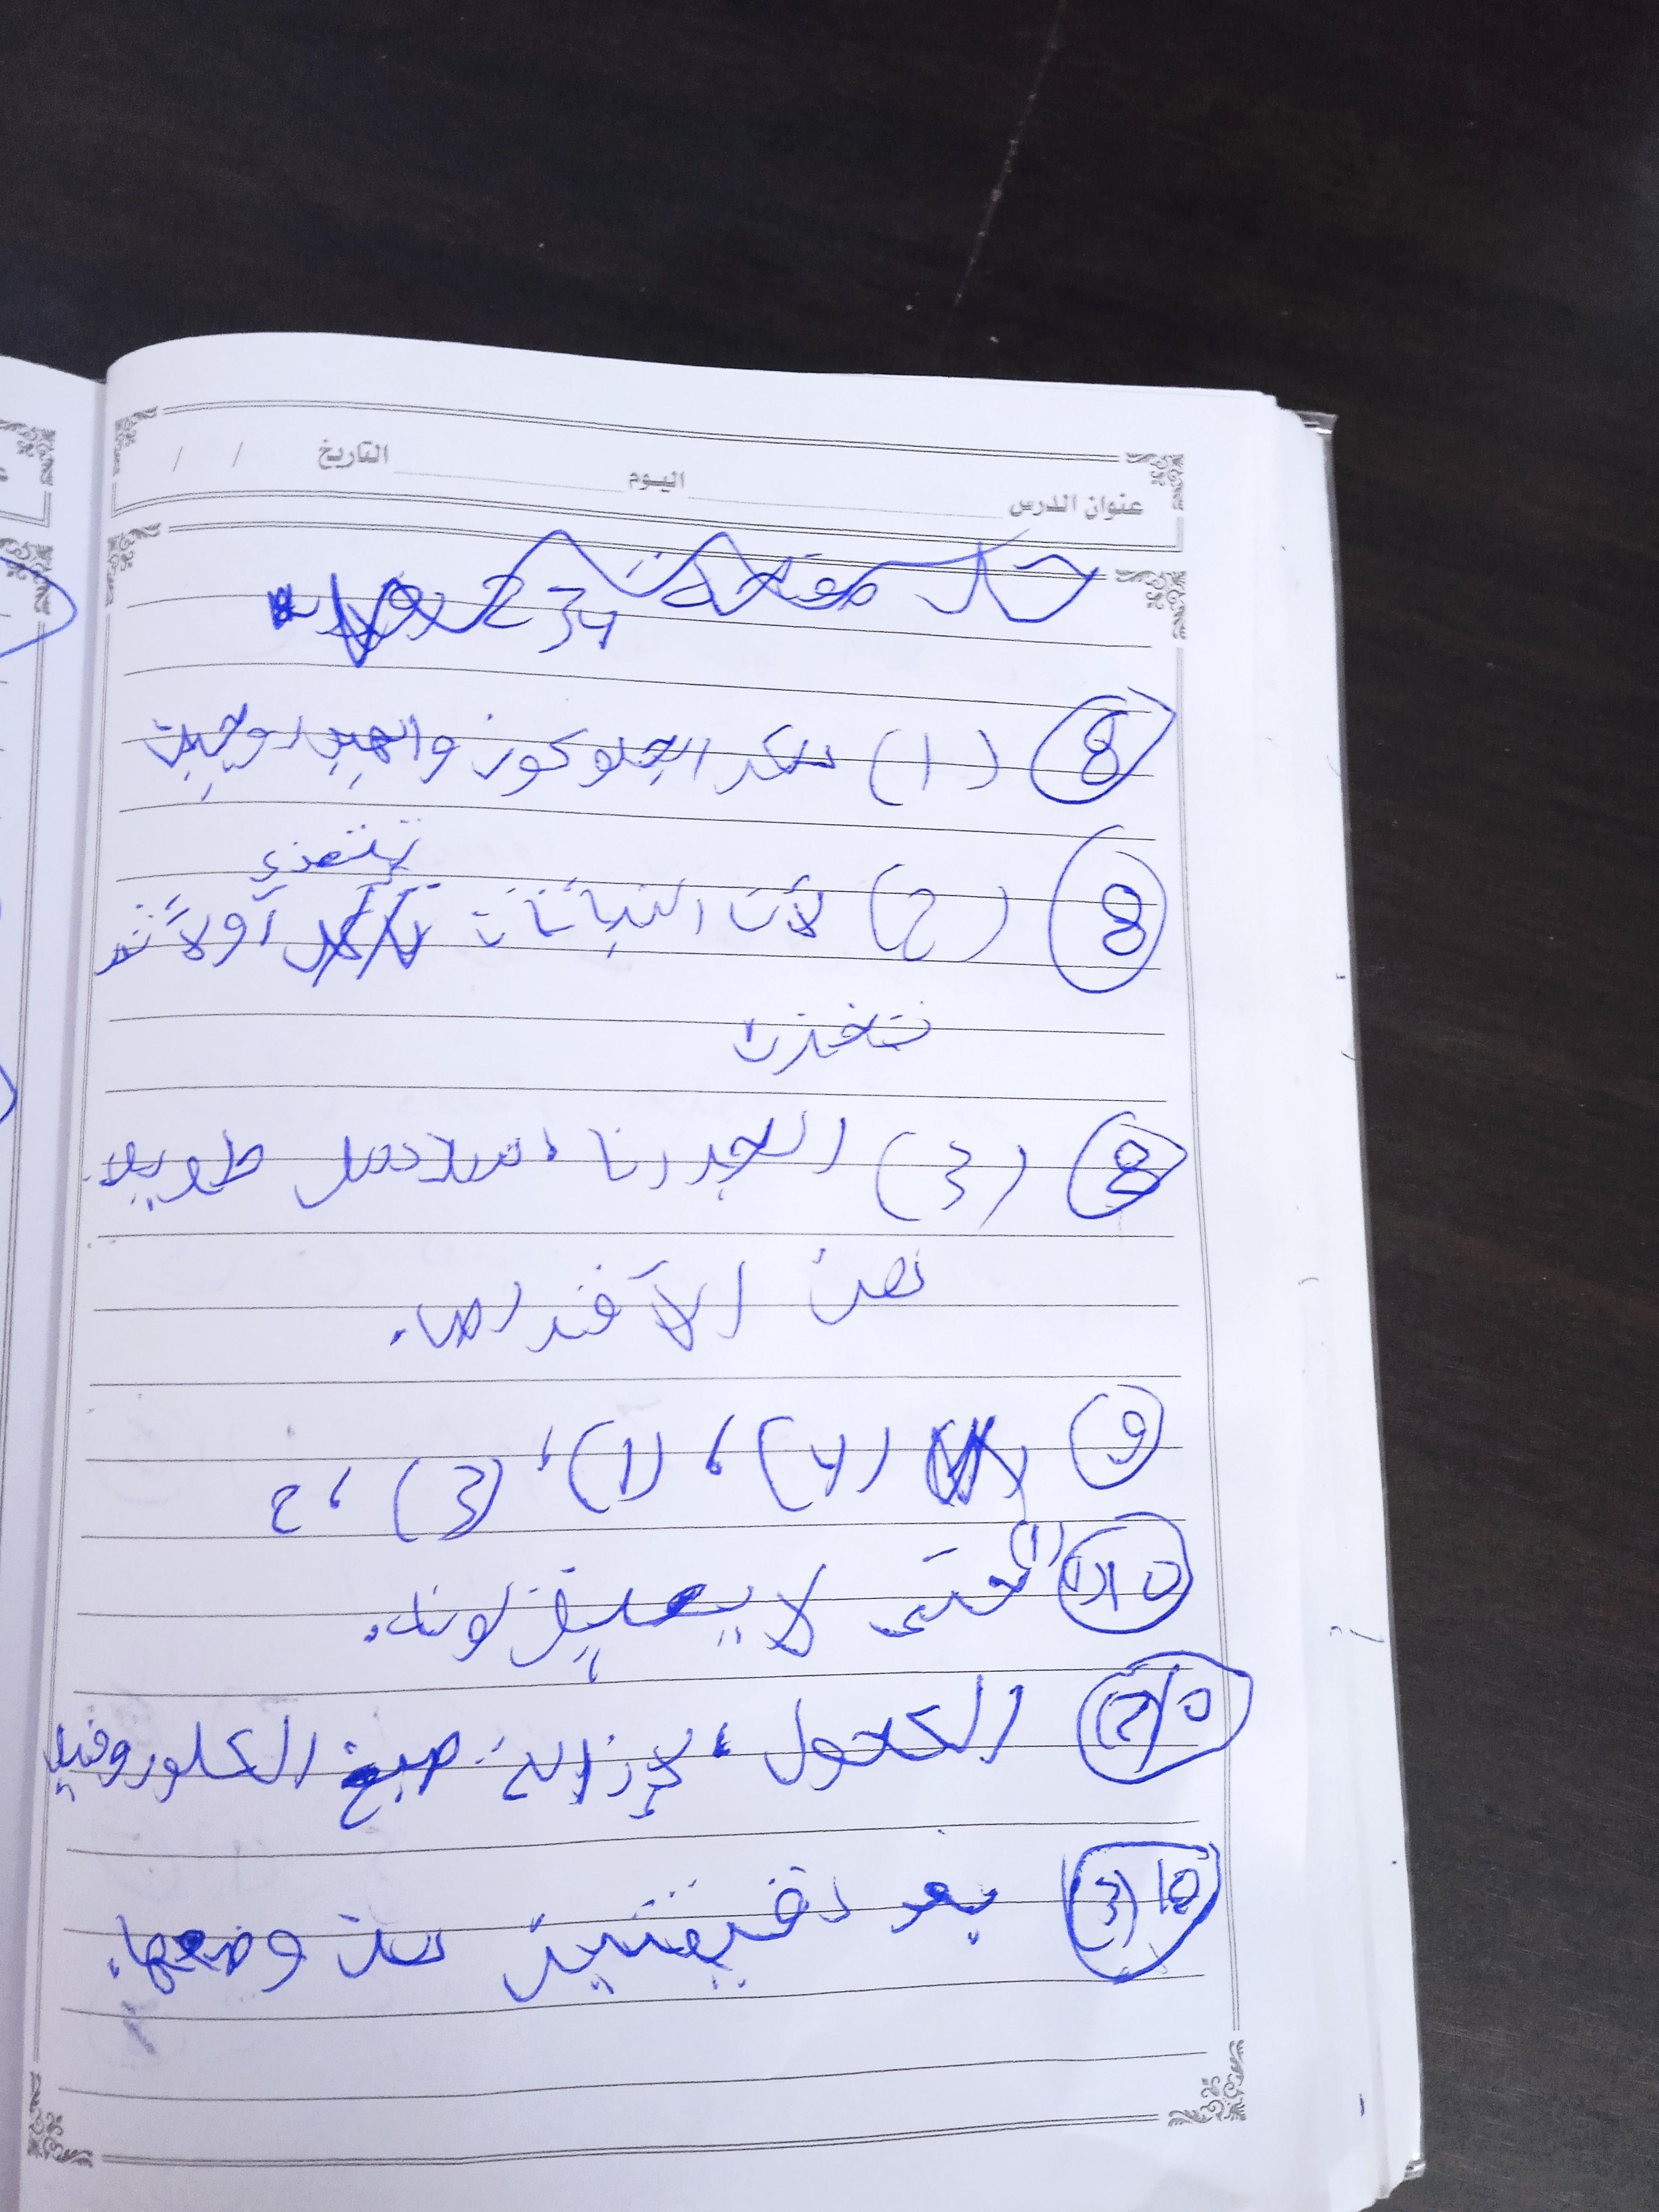 عنوان الدرس اليوم التاريخ / /
حل صفحة 234
8 (1) سكر الجلوكوز والهيدروجين
8 (2) لأن النباتات تتغذى أولاً ثم
تخزن
8 (3) الجدرنا، سلاسل طويلة
من الأقراص.
9 (4)، (1)، (3)، 2
10 (1) حتى لا يعيق لونه.
10 (2) الكحول، لإزالة صبغ الكلوروفيل
10 (3) بعد دقيقتين من وضعها.